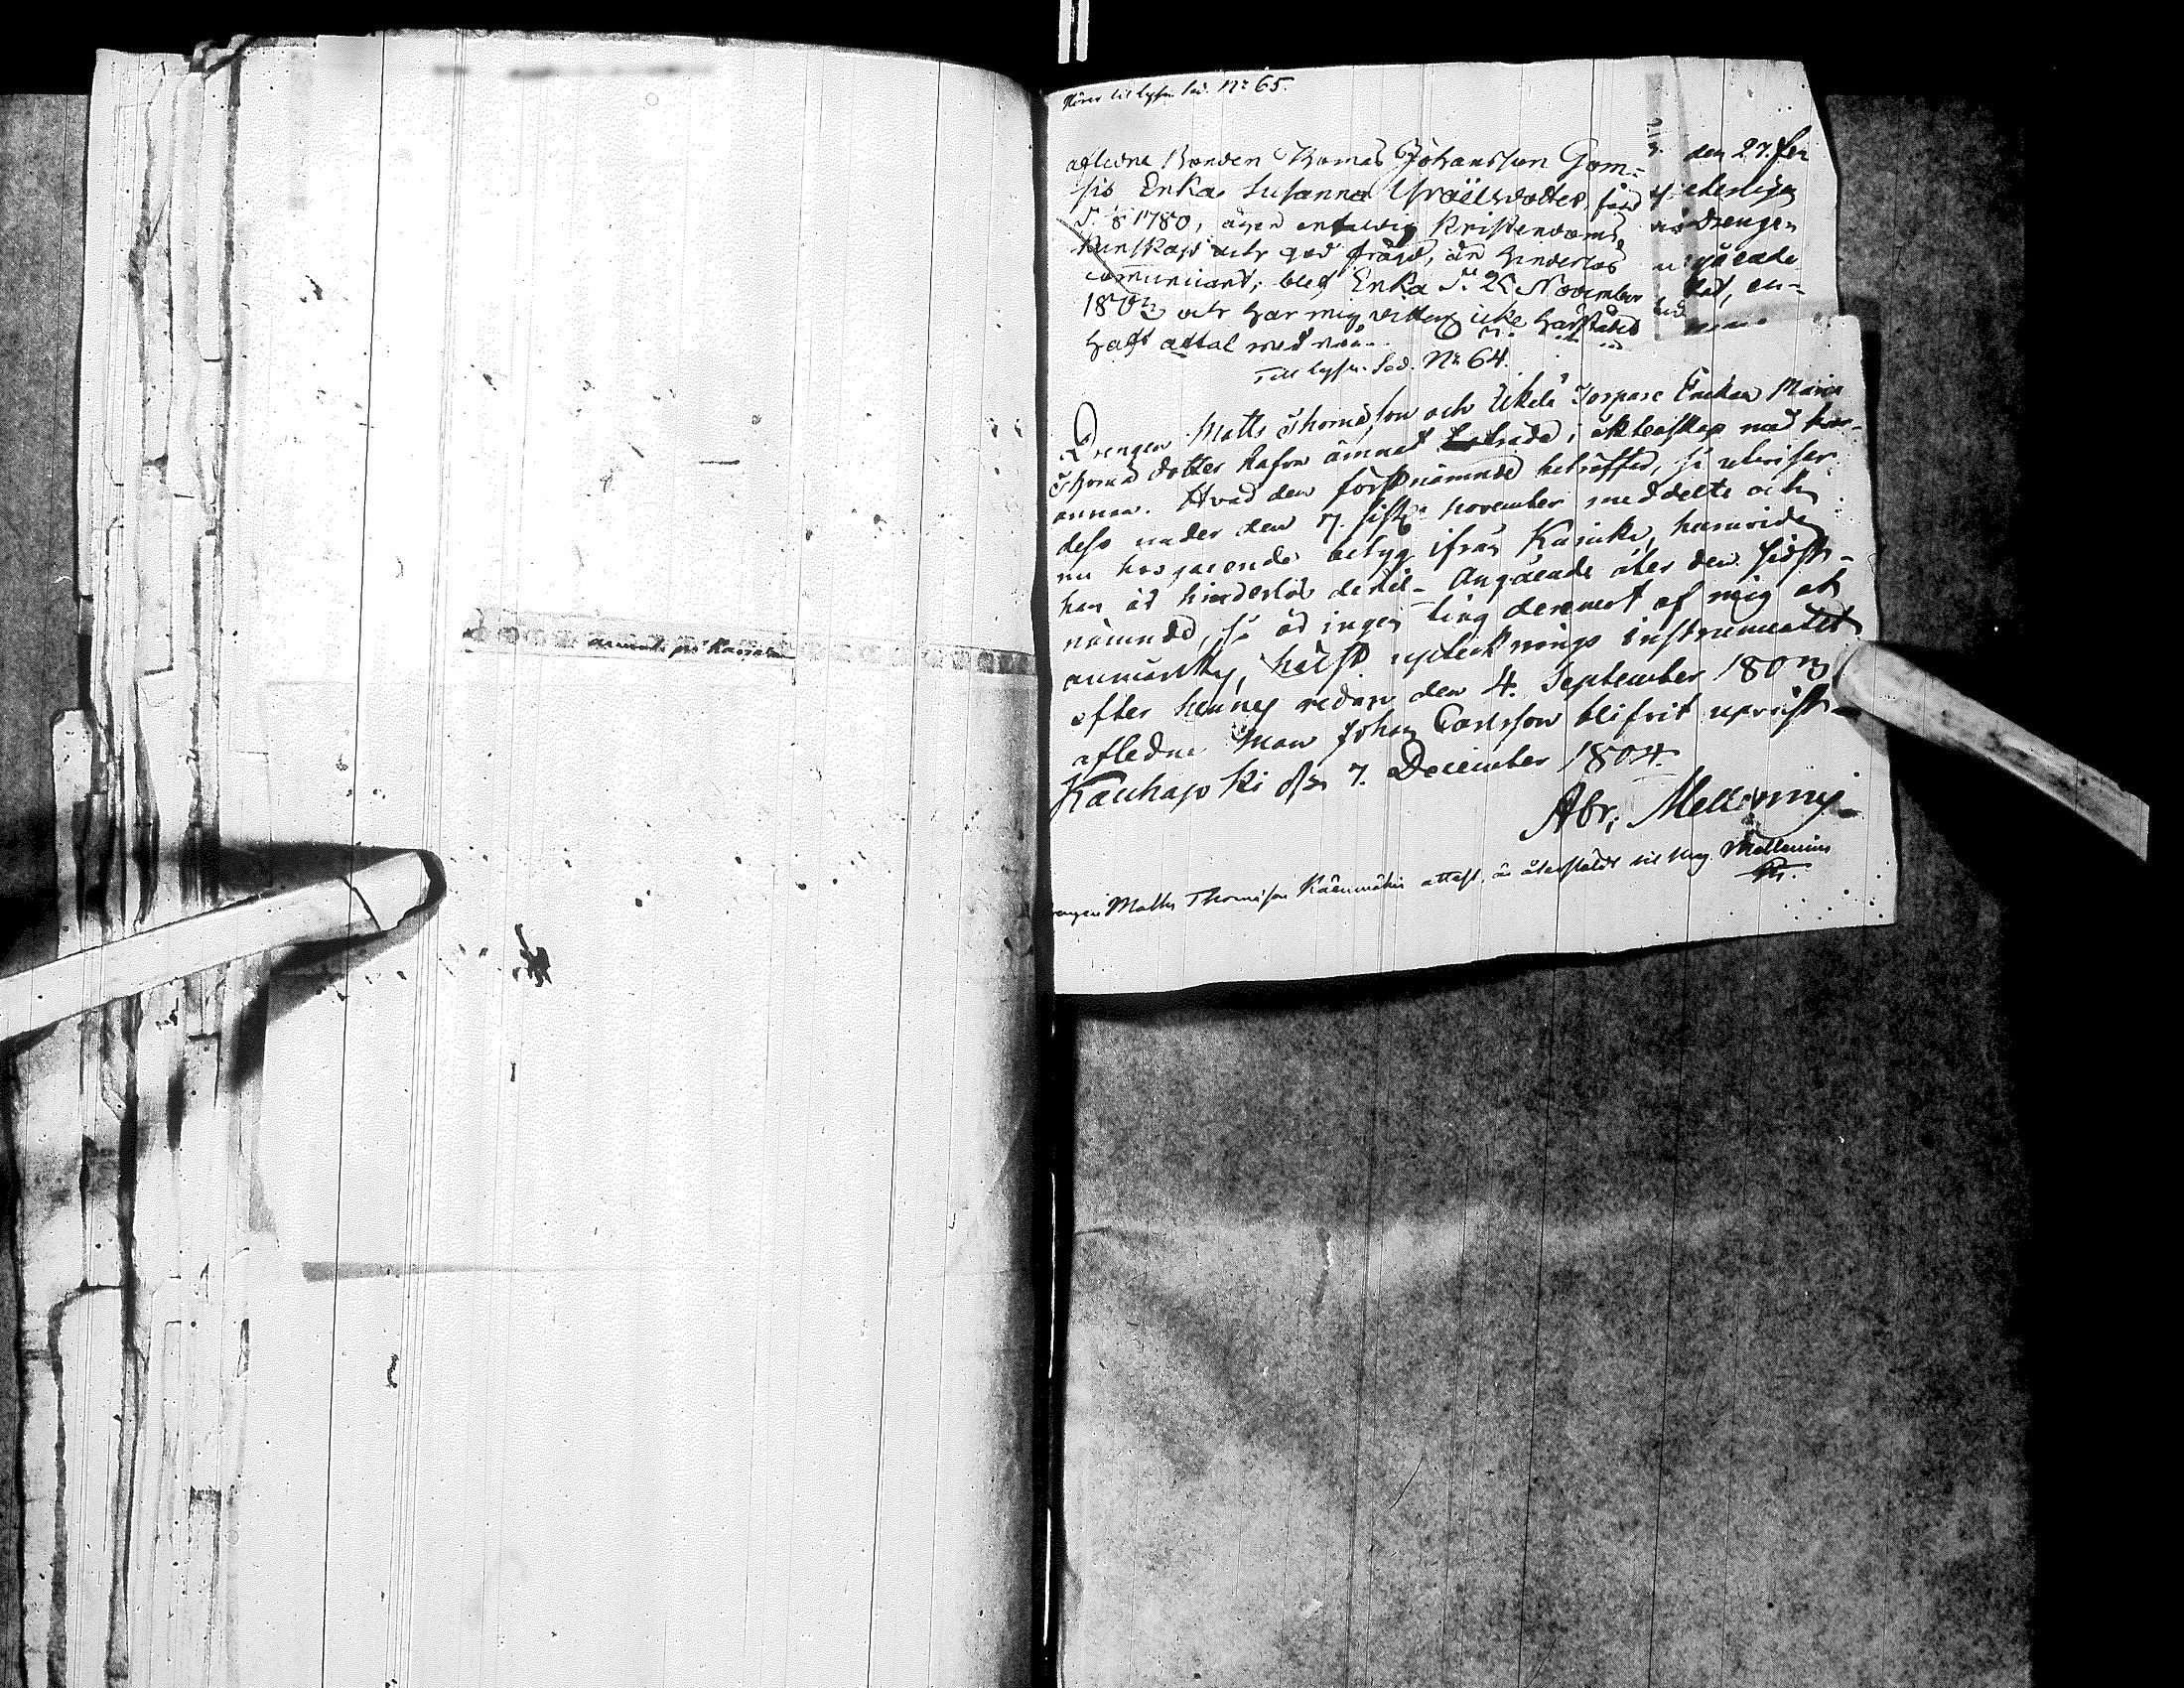 Hörer til lysn. Sed. No 65.
aflidne Bonden Thomas Johansson Gom-
sis Enka Susanna Israëlsdotter, född
d. 8 1780, äger Kristendoms
kunskap och god frägd, är hinderlös
communicant; blef Enka d. 25 November
1803 och har mig vitterl. icke härstädes
haft aftal med
den 27. Fe
drengen
gående
hat, en-
Till lysn. Sed. No 64.
Drengen Matts Thomasson och Ikela Torpare Enckan Maria
Thomasdotter hafva ämnat träda i äktenskap med hvar-
annan. Hvad den förstnämnde beträffar, så utviser
dess under den 7. sistl. november meddelte och
nu hosgående betyg ifrån Kurikka, huruvida
han är hinderlös dertil. Angående åter den sidst-
nämnde, så är ingen ting deremot af mig at
anmärka, hälst uptecknings instrumentet
efter hennes redan den 4. September 1803
afledne man Johan Carlsson blifvit uprätt.
Kauhajoki d. 7. December 1804.
Abr. Mellenius
Drengen Matts Thomasson attest. är återstäldt til Mag. Mellenius